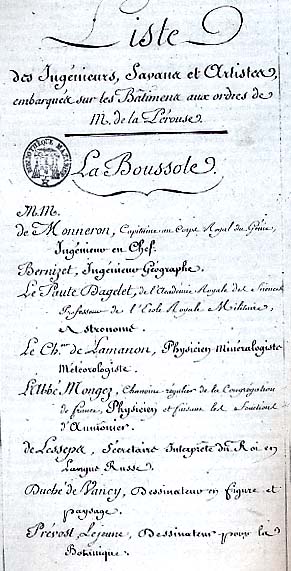 Liste
des Ingénieurs, Savans et Artistes,
embarqués sur les Bâtimens aux ordres de
M. de la Pérouse.
BIBLIOTHEQUE MAZARINE
La Boussole.
M.M.
de Monneron, Capitaine au Corps Royal du Génie,
Ingénieur en Chef.
Bernizet, Ingénieur Géographe.
Le Paute Dagelet, de l'Académie Royale des Sciences
Professeur de l'Ecole Royale Militaire,
Astronome.
Le Ch.er de Lamanon, Physicien Minéralogiste
Météorologiste.
L'Abbé Mongez, Chanoine régulier de la Congrégation
de france, Physicien et faisant les fonctions
d'Aumônier.
de Lesseps, Secrétaire Interprète du Roi en
Langue Russe.
Duché de Vancy, Dessinateur en figure et
paysage.
Prévost, Lejeune, Dessinateur pour la
Botanique.